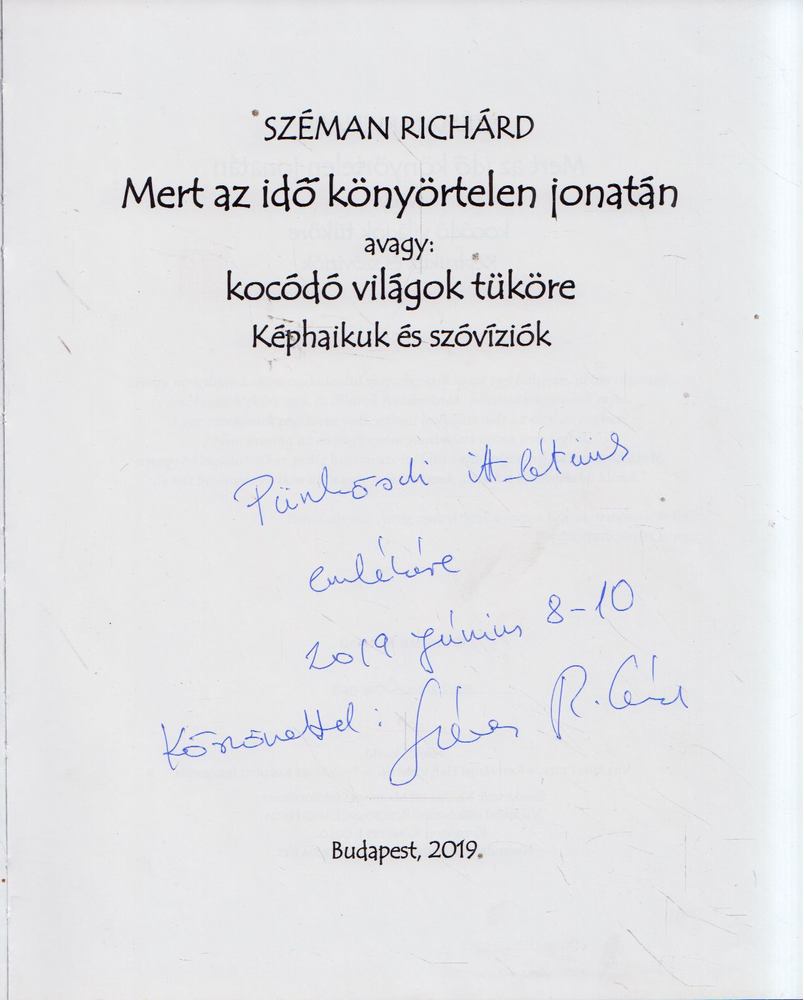 SZÉMAN RICHÁRD
Mert az idő könyörtelen jonatán
avagy:
kocódó világok tüköre
Képhaikuk és szóvíziók
Pünkösdi itt-létünk
emlékére
2019 június 8-10
Köszönettel: Széman R.
Budapest, 2019.